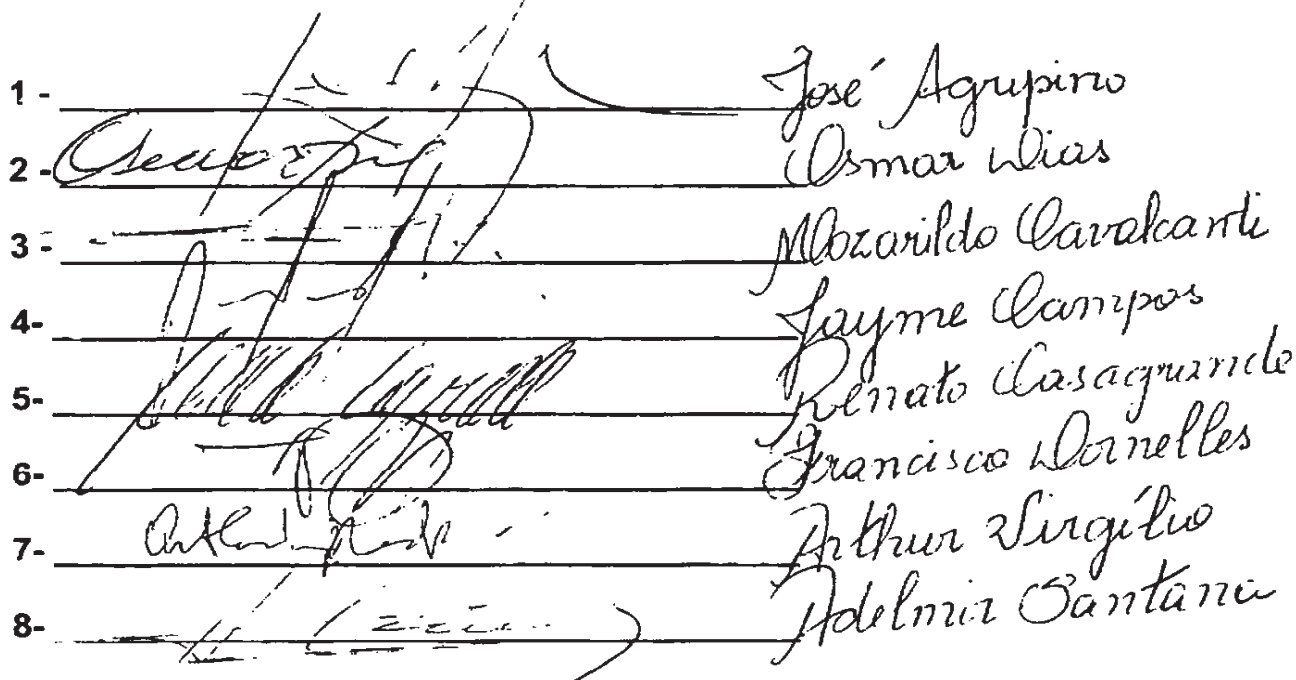 1 - José Agripino
2 - Osmar Dias
3 - Mozarildo Cavalcanti
4- Jayme Campos
5- Renato Casagrande
6- Francisco Dornelles
7- Arthur Virgílio
8- Adelmir Santana